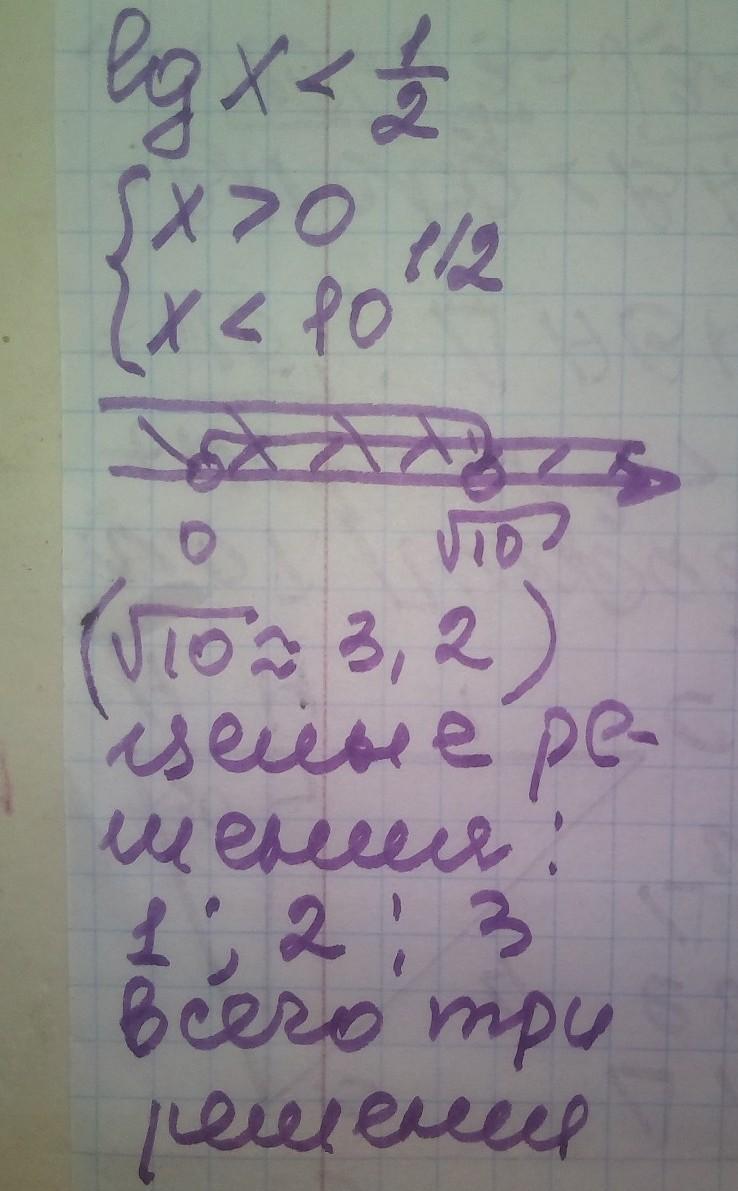 lg x < 1/2
{ x > 0
x < 10^1/2
0 √10
(√10 ≈ 3,2)
целые ре-
шения:
1; 2; 3
всего три
решения